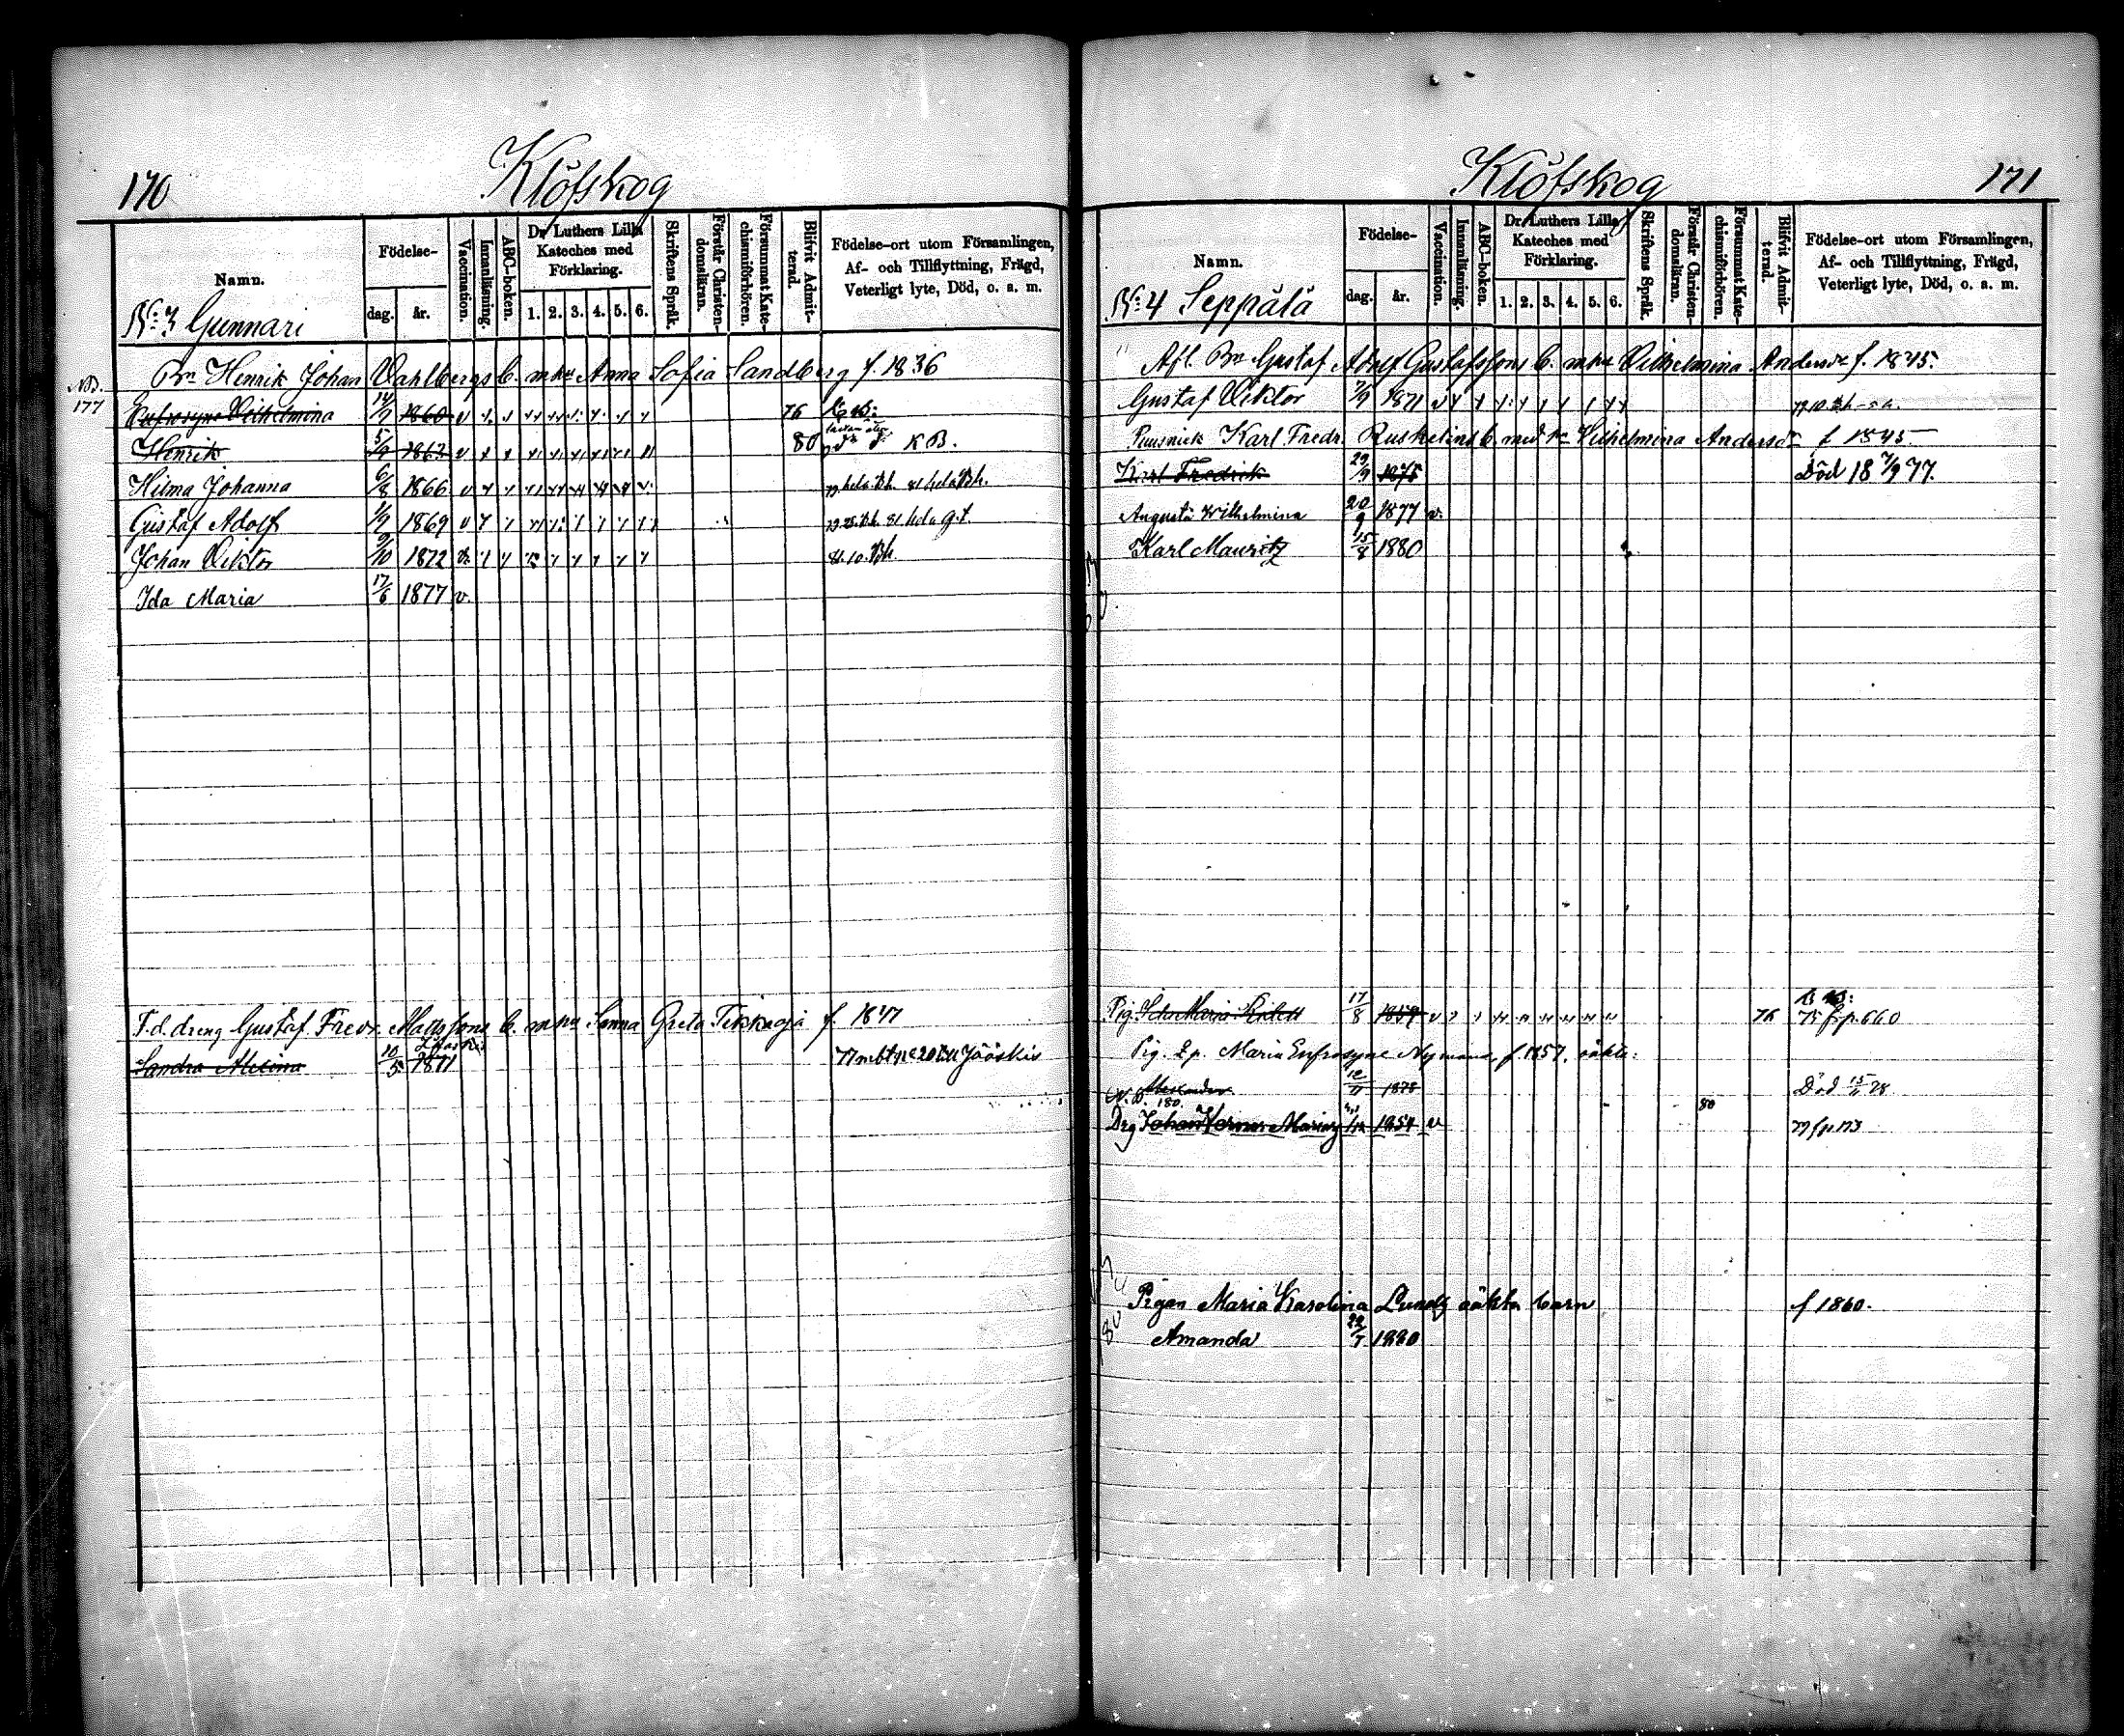 170
Klöfskog
Namn.
Födelse-
dag.
år.
Vaccination.
Innanläsning.
ABC-boken.
Dr Luthers Lilla
Kateches med
Förklaring.
1. 2. 3. 4. 5. 6.
Skriftens Språk.
Förstår Christen-
domsläran.
Försummat Kate-
chismiförhören.
Blifvit Admit-
terad.
Födelse-ort utom Församlingen,
Af- och Tillflyttning, Frägd,
Veterligt lyte, Död, o. a. m.
No: 3 Gunnari
Bn Henrik Johan Vahlbergs b. m hu Anna Sofia Sandberg f. 1836
177
Eufrosyne Vilhelmina 14/9 1860 v 76
Henrik 5/9 1863 v 80 K B.
Hilma Johanna 6/8 1866 v 79 hela Kh. 81 hela Kh.
Gustaf Adolf 1/9 1869 v 81 hela g.t.
Johan Viktor 9/10 1872 v. 81. 10. Kh.
Ida Maria 17/6 1877 v.
F.d. dreng Gustaf Fredr. Mattssons b. m hu Sanna Greta Tikkaoja f. 1847
Sandra Alexina 10/5 1871 Jääskis
171
Klöfskog
Namn.
Födelse-
dag.
år.
Vaccination.
Innanläsning.
ABC-boken.
Dr Luthers Lilla
Kateches med
Förklaring.
1. 2. 3. 4. 5. 6.
Skriftens Språk.
Förstår Christen-
domsläran.
Försummat Kate-
chismiförhören.
Blifvit Admit-
terad.
Födelse-ort utom Församlingen,
Af- och Tillflyttning, Frägd,
Veterligt lyte, Död, o. a. m.
No: 4 Seppälä
Afl. Bn Gustaf Adolf Gustafssons b. m hu Vilhelmina Andersdr f. 1845.
Gustaf Viktor 7/9 1871 v
Karl Fredr. Ruskelins b. med hu Vilhelmina Andersdr f 1845
Karl Fredrik 29/9 1875 Död 18 7/9 77.
Augusta Wilhelmina 20/9 1877 v.
Karl Mauritz 15/8 1880
Pig. Maria 17/8 1859 v 76 75 fr p. 660
Pig. Maria Eufrosyne Nyman f. 1857. oäkta:
Alexander 12/11 1878 Död 15/11 78
N. B. 180. 80
Drg Johan Verner 1854 v
Pigan Maria Karolina Lund oäkta barn f 1860.
Amanda 29/7 1880